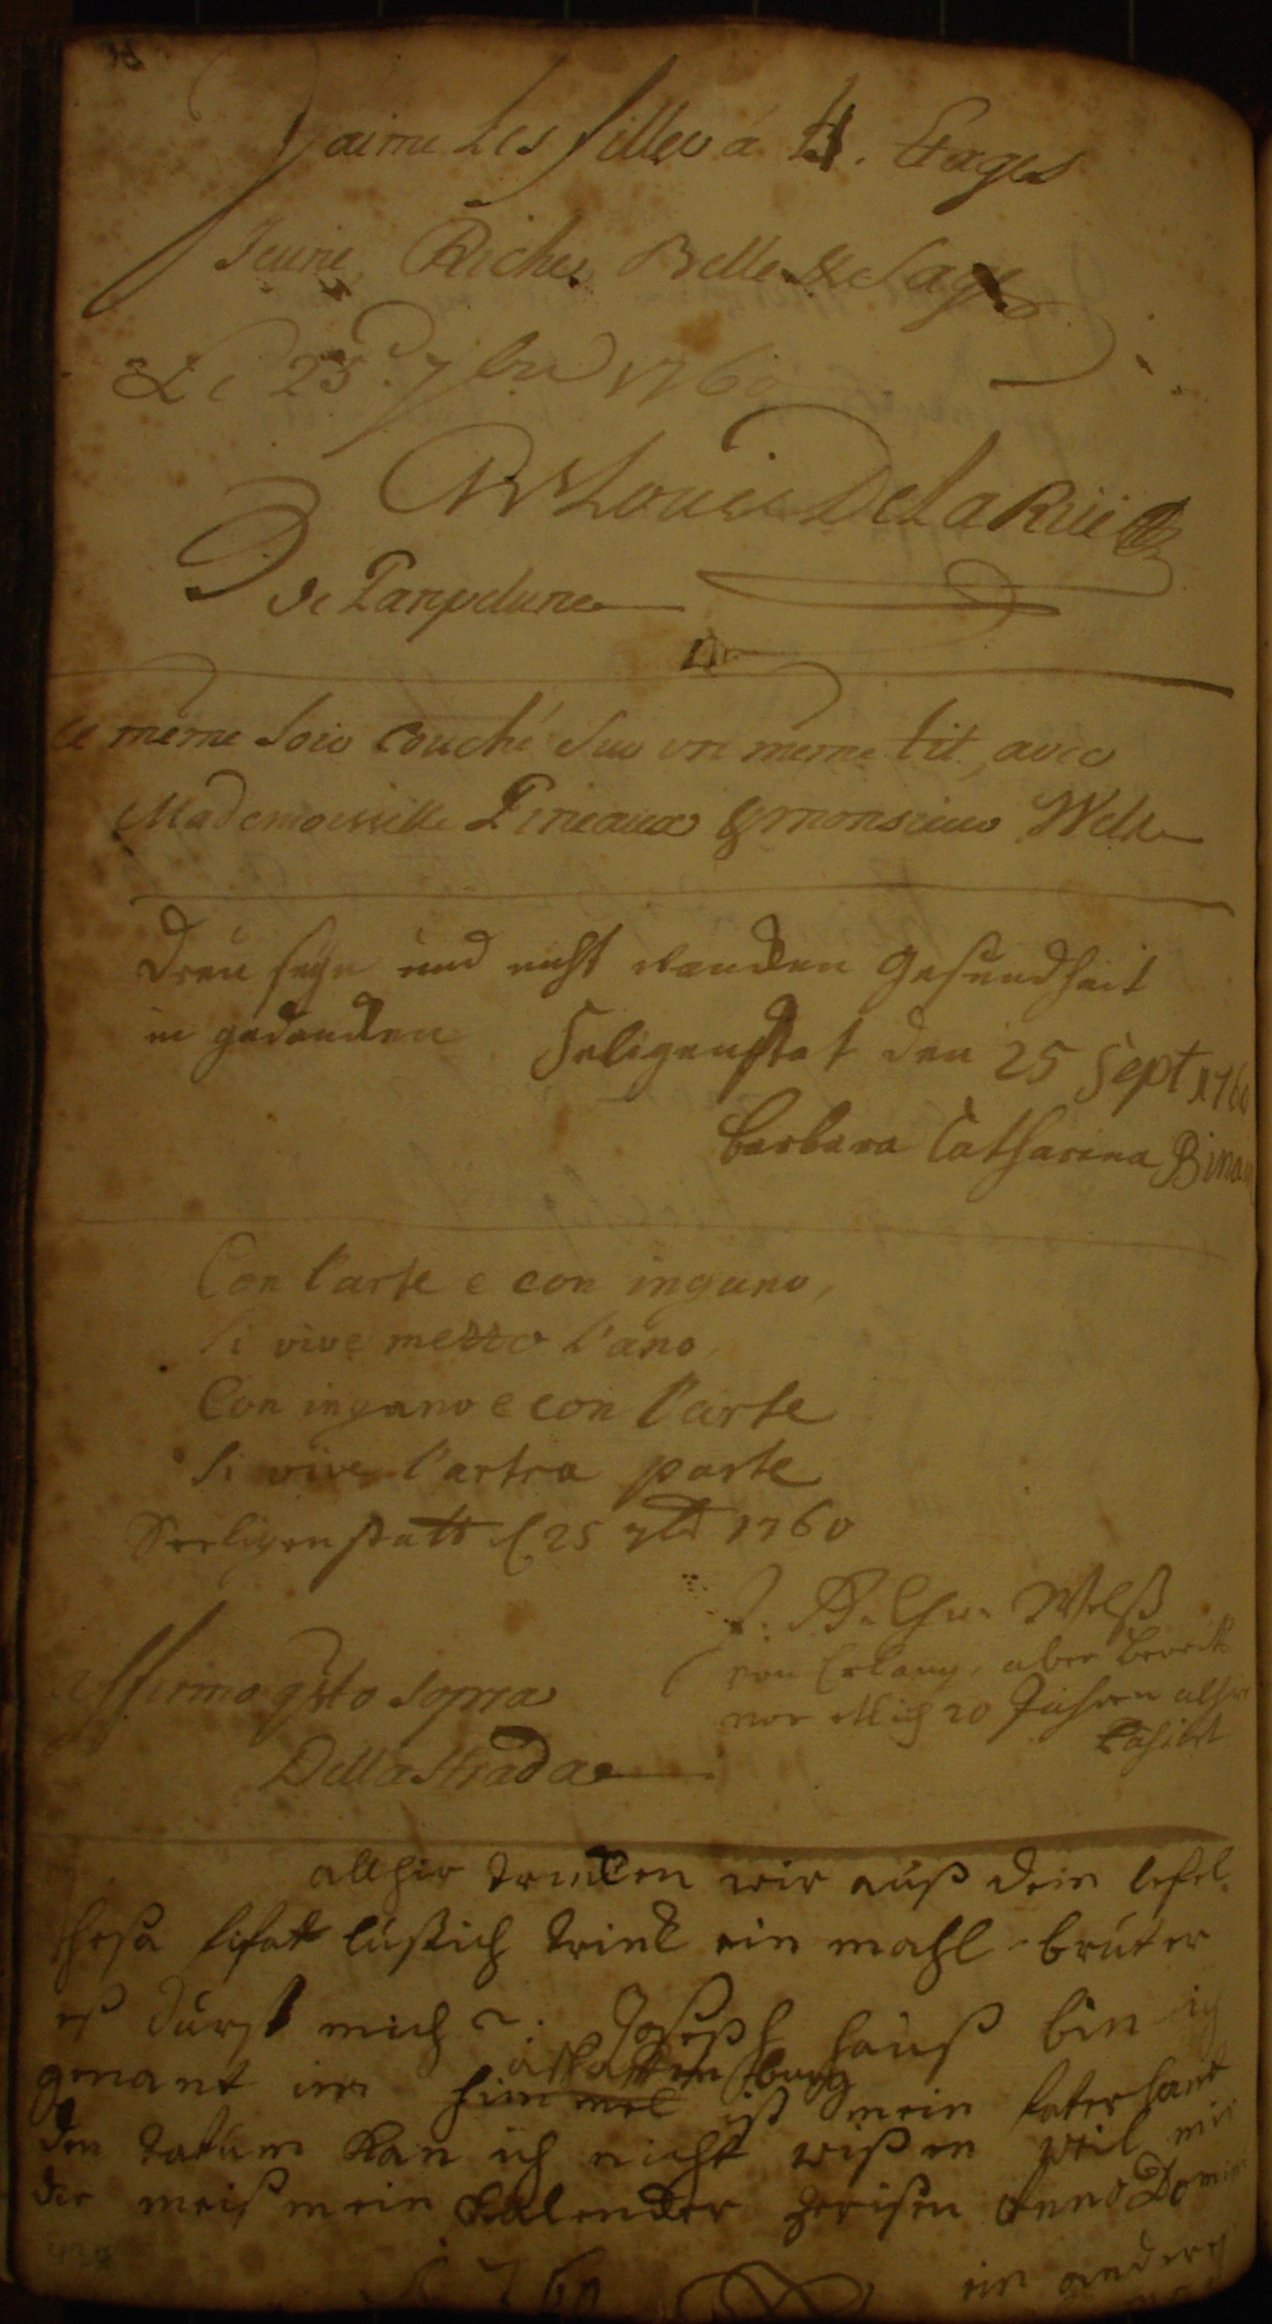 J'aime Les filles á 4. Etages
Jeune, Riche, Belle & Sage
Le 25.e 7bre 1760
Louis DeLaRüe
de Pampelune
Le même Soir couché Sur un même lit, avec
Mademoiselle Pineaux & monsieur Welsz
Dreu seyn und nicht wancken gesundheit
in gedancken Seligenstat den 25 Sept 1760
Barbara Catharina
Con l'arte e con ingano,
Si vive mezzo l'ano
Con ingano e con l'arte
Si vive l'artra parte
Seeligenstatt d 25 7br 1760
Welß
von Erlang, aber bereits
vor etlich 20 Jahren alhier
Pasirt
affirmo qsto sopra
Della Strada
allhir trincken wir auß dem lefel
lüstich trinck ein mahl brüter
es dürst mich Joseph hauß bin ich
aschaffenburg
genant im himmel ist mein faterhant
den datum kan ich nicht wißen weil mir
die meiß mein kalender zerißen Anno Domini
1760 ein anders